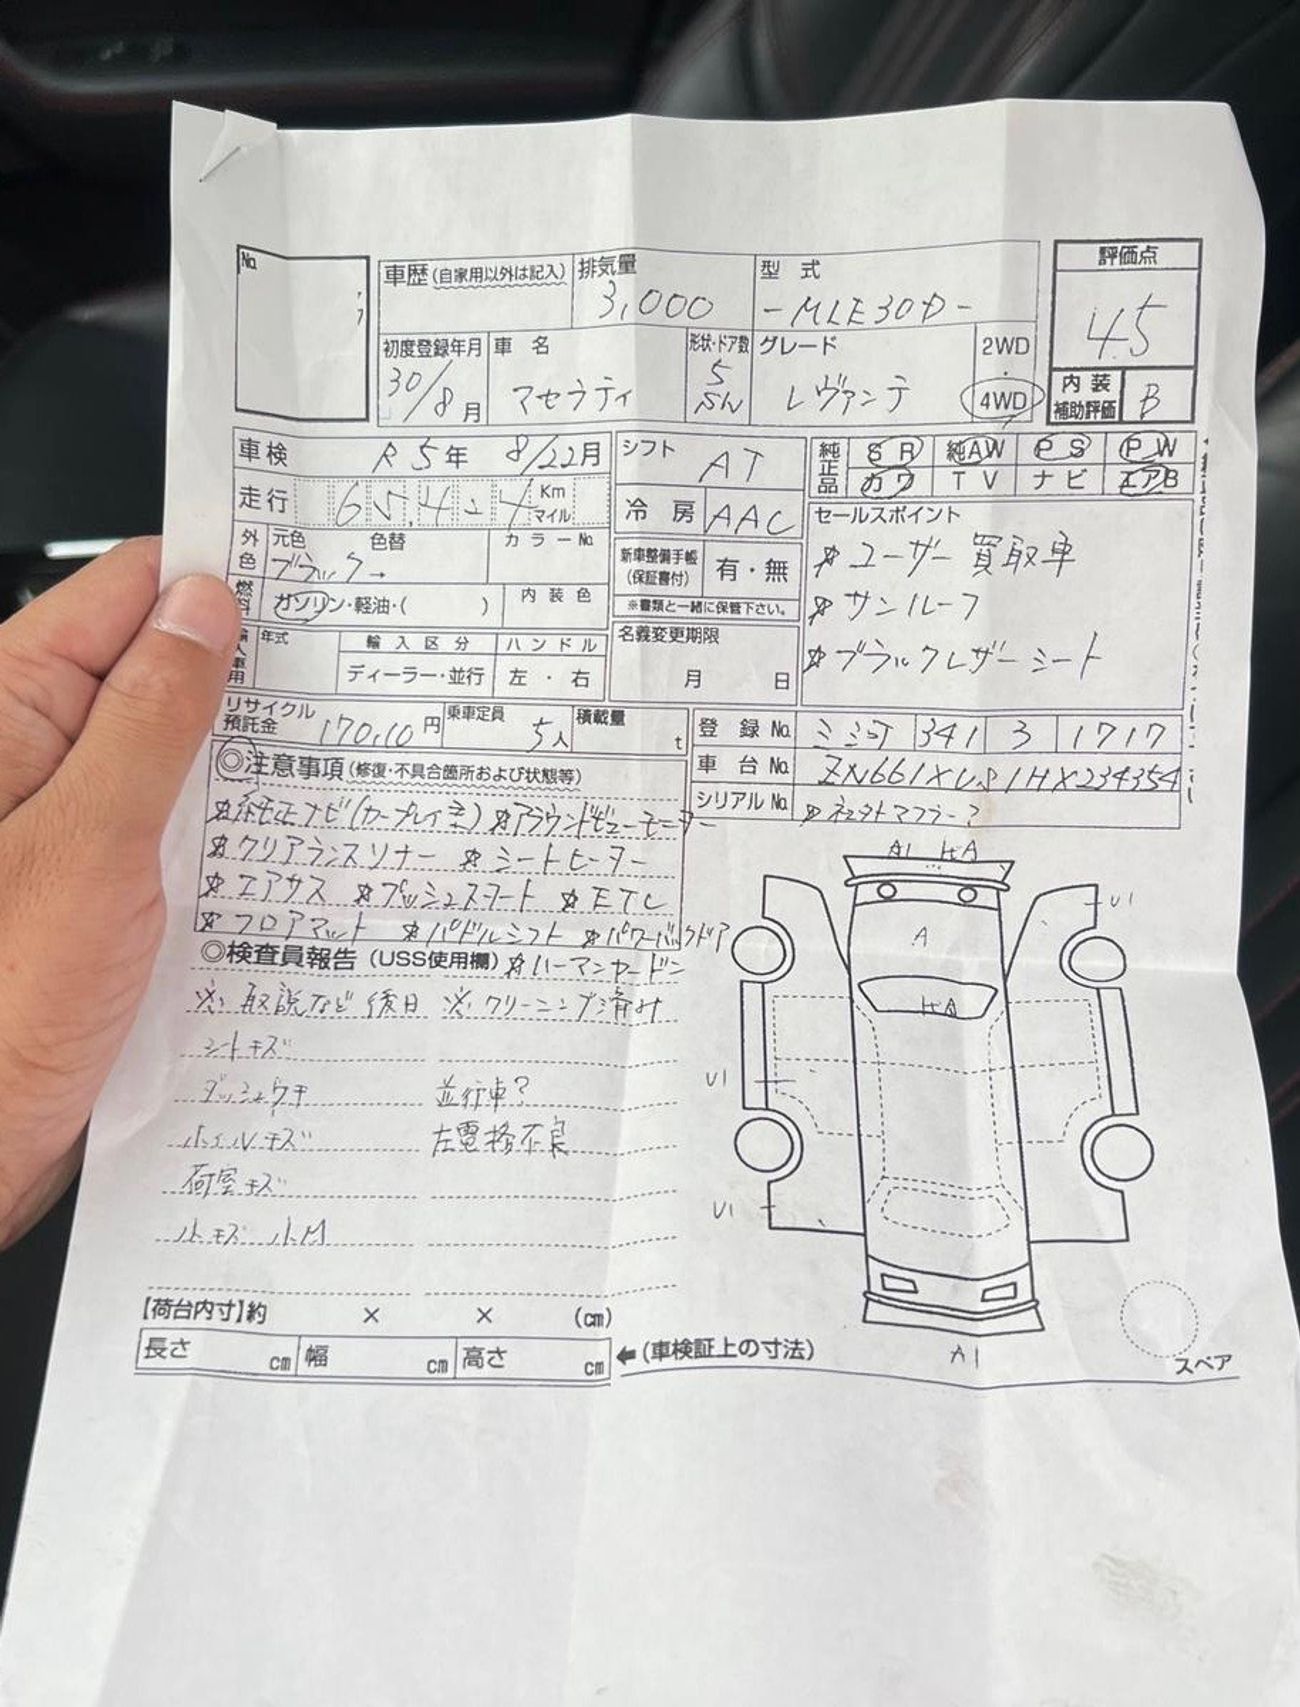 No.
車歴(自家用以外は記入) 排気量 型式 評価点
3,000 -MLE30D- 4.5
初度登録年月 車名 形状・ドア数 グレード 2WD・4WD
30/8月 マセラティ 5 レヴァンテ
内装補助評価 B
車検 R5年 8/22月 シフト AT
純正品 SR 純AW PS PW
カワ TV ナビ エアB
走行 Km マイル
冷房 AAC
セールスポイント
外色 元色 色替 カラーNo.
ブラック→
☆ユーザー買取車
新車整備手帳(保証書付) 有・無
燃料 ガソリン・軽油・( ) 内装色
※書類と一緒に保管下さい。
☆サンルーフ
輸入車用 年式 輸入区分 ハンドル
ディーラー・並行 左・右
名義変更期限
月 日
☆ブラックレザーシート
リサイクル預託金 円 乗車定員 5人 積載量 t
登録No. 341 3 1717
◎注意事項(修復・不具合箇所および状態等)
車台No. ZN661XUS1HX234354
シリアルNo.
☆純正ナビ(カープレイ含) ☆アラウンドビューモニター
☆クリアランスソナー ☆シートヒーター
☆エアサス ☆プッシュスタート ☆ETC
☆フロアマット ☆パドルシフト ☆パワーバックドア
◎検査員報告(USS使用欄) ☆ハーマンカードン
※取説など後日 ※クリーニング済み
シートキズ
ダッシュウキ 並行車?
ホイルキズ 左電格不良
荷室キズ
小キズ 小M
A1 HA
U1
A
HA
U1
U1
A1
スペア
【荷台内寸】約 × × (cm)
長さ cm 幅 cm 高さ cm ←(車検証上の寸法)